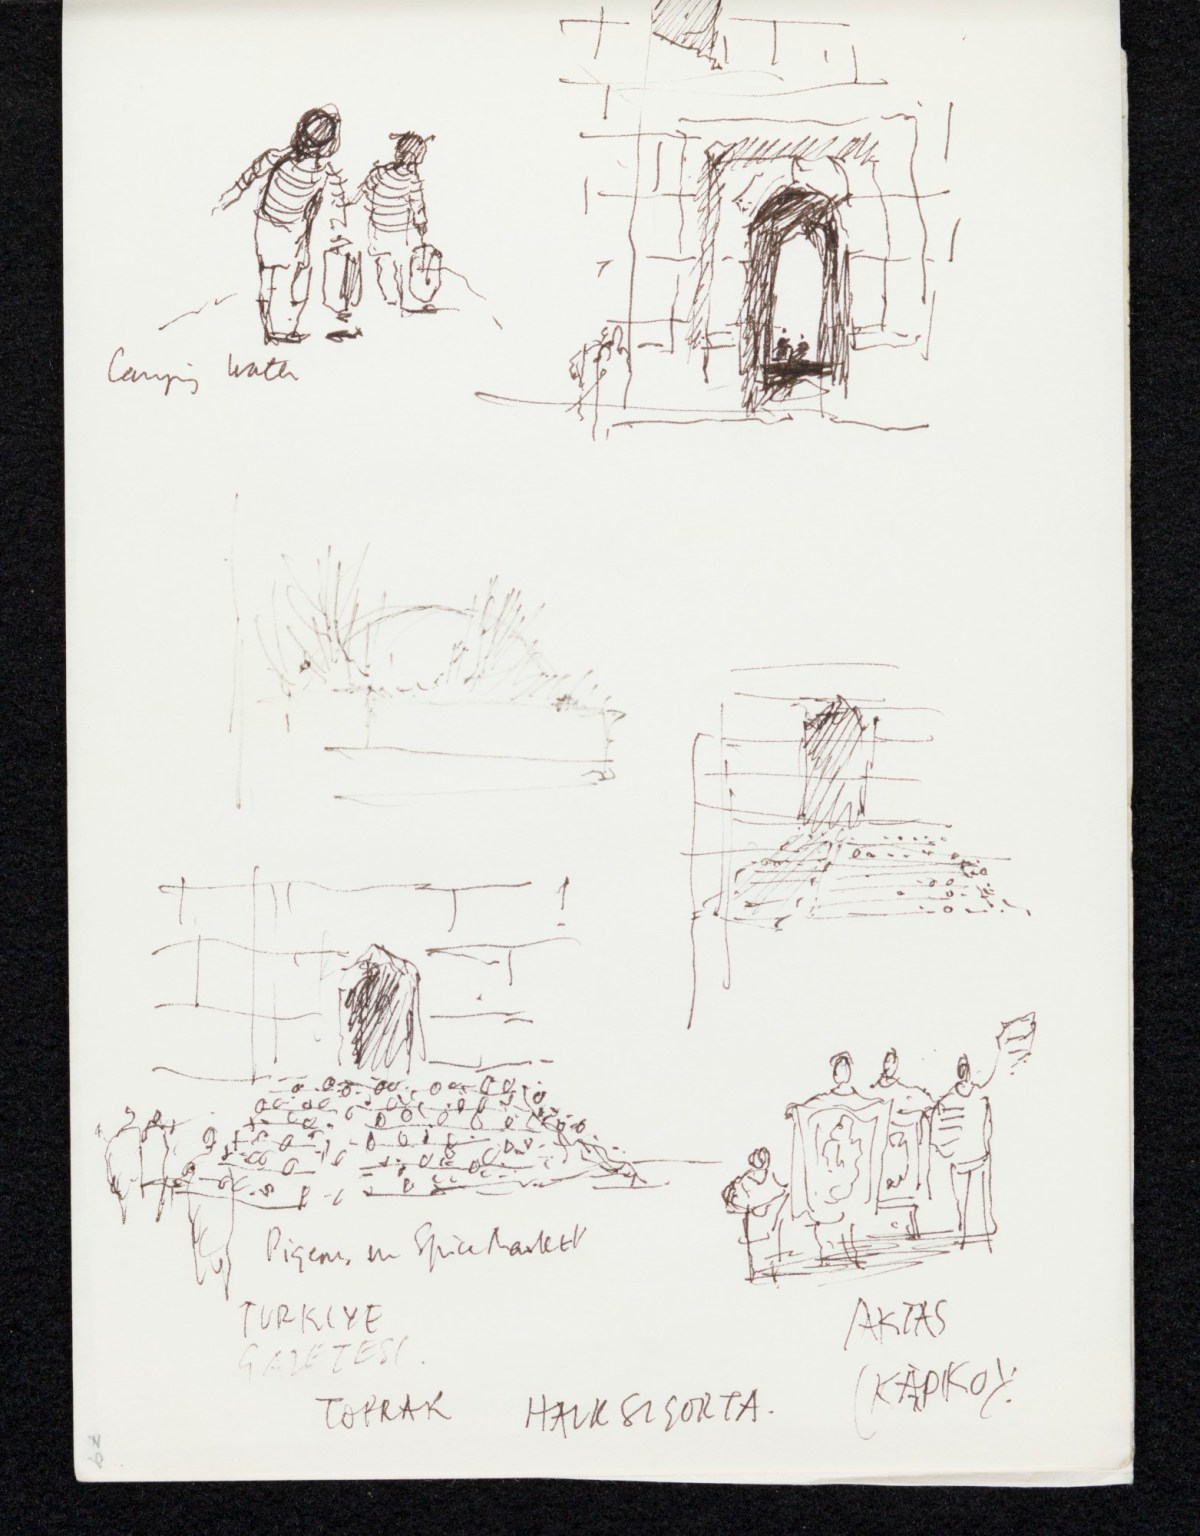 Carrying water
Pigeons in Spice Market
TURKIYE
GAZETESI.
TOPRAK HALK SIGORTA.
AKTAS
(KAPIKOY.